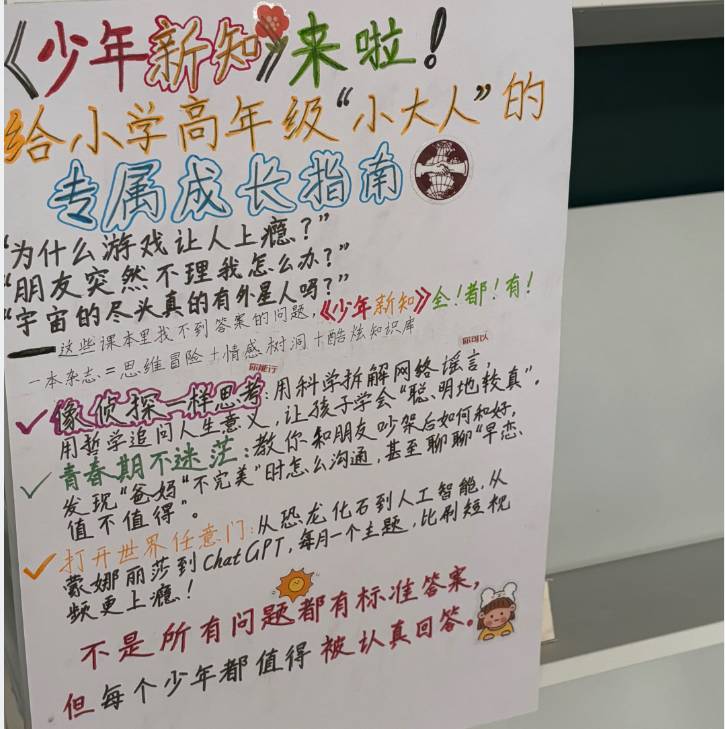 《少年新知》来啦！
给小学高年级“小大人”的
专属成长指南
“为什么游戏让人上瘾？”
“朋友突然不理我怎么办？”
“宇宙的尽头真的有外星人吗？”
——这些课本里找不到答案的问题，《少年新知》全！都！有！
一本杂志=思维冒险+情感树洞+酷炫知识库
你能行
你可以
✓像侦探一样思考：用科学拆解网络谣言，
用哲学追问人生意义，让孩子学会“聪明地较真”。
✓青春期不迷茫：教你和朋友吵架后如何和好，
发现“爸妈“不完美”时怎么沟通，甚至聊聊“早恋
值不值得”。
✓打开世界任意门：从恐龙化石到人工智能，从
蒙娜丽莎到ChatGPT，每月一个主题，比刷短视
频更上瘾！
不是所有问题都有标准答案，
但每个少年都值得被认真回答。